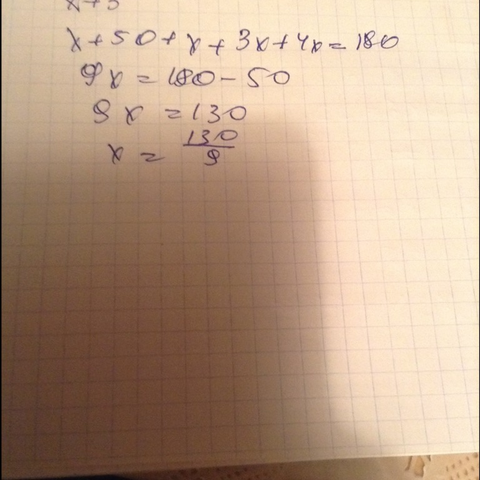 x+5
x+50+x+3x+4x=180
9x=180-50
9x=130
x=130/9